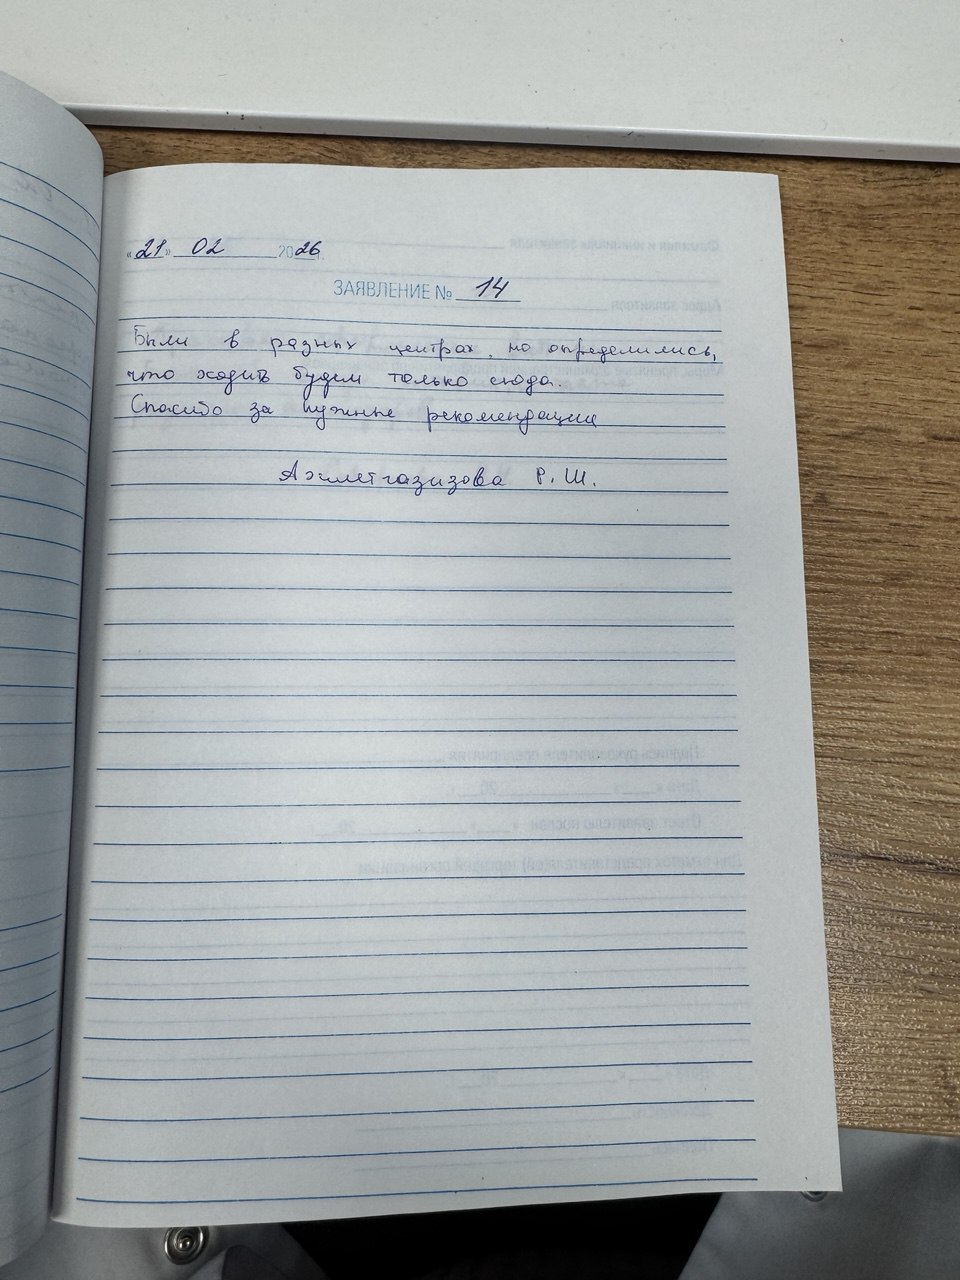 «21» 02 2026г.
ЗАЯВЛЕНИЕ № 14
Были в разных центрах, но определились,
что ходить будем только сюда..
Спасибо за нужные рекомендации
Ахметгазизова Р. Ш.